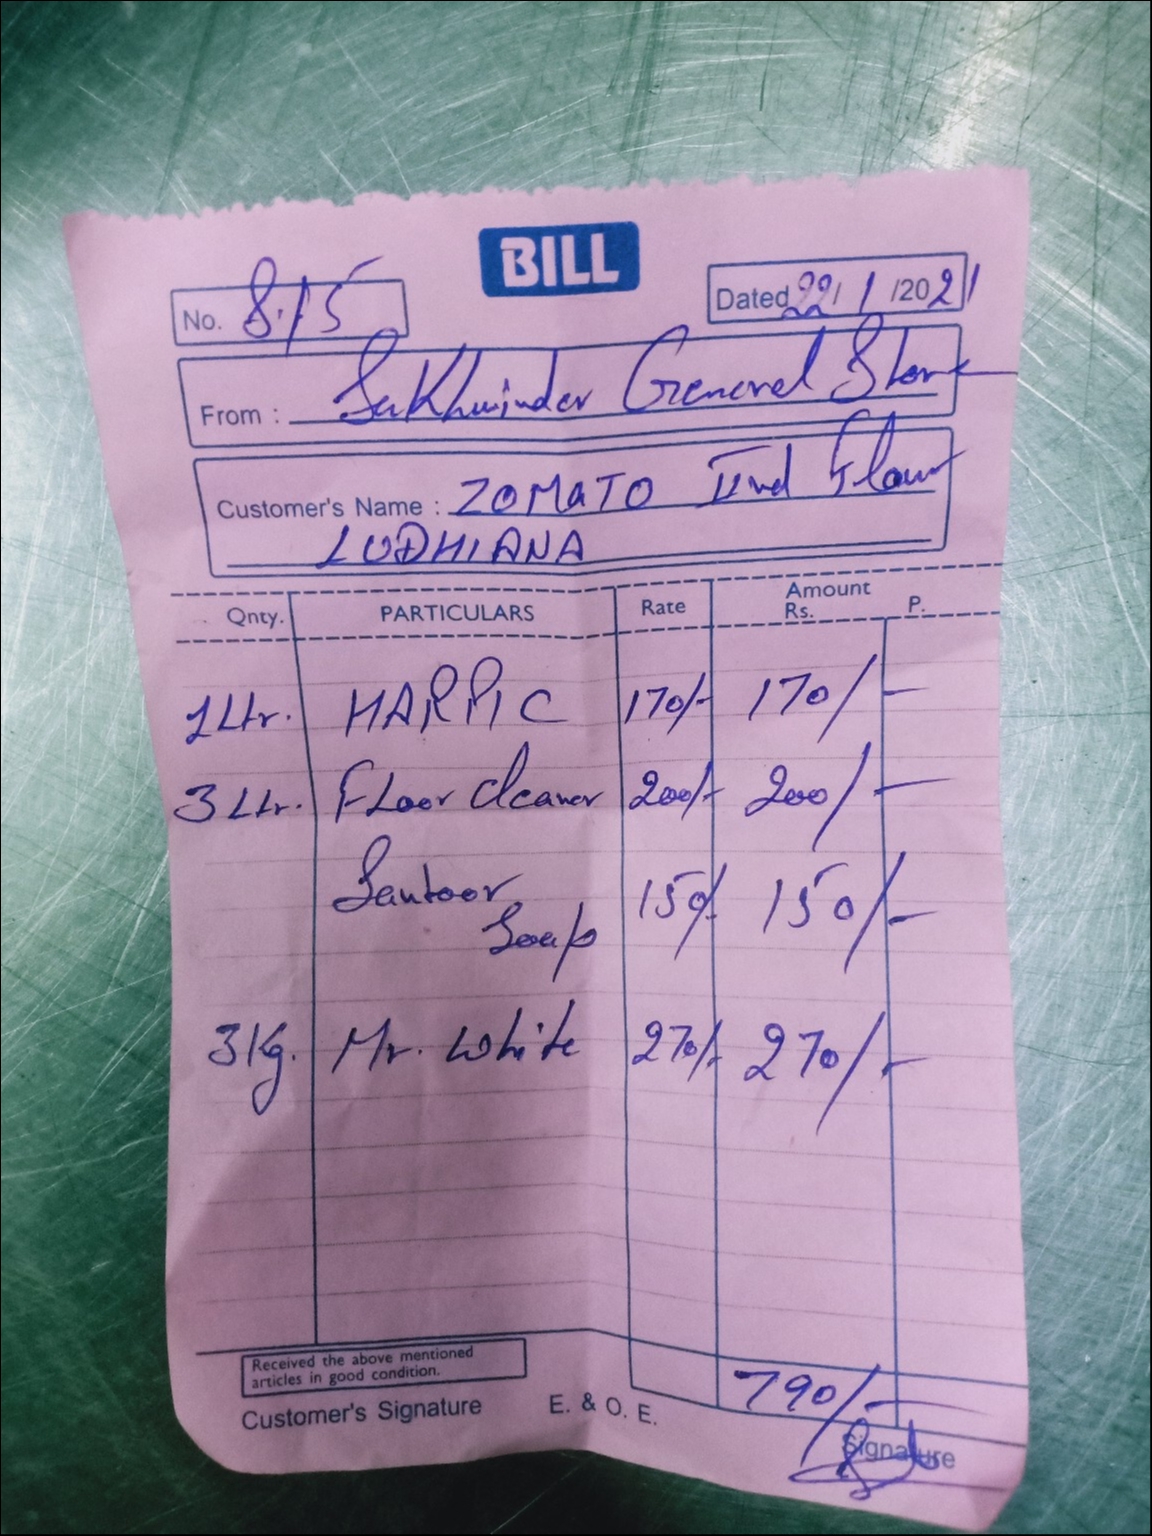 BILL
No. 815
Dated 22/1/2021
From : Sukhwinder General Store
Customer's Name : ZOMATO IInd Floor
LUDHIANA
Qnty. PARTICULARS Rate Amount Rs. P.
1 Ltr. HARPIC 170/- 170/-
3 Ltr. Floor Cleaner 200/- 200/-
Santoor 150/- 150/-
Soap
3 Kg. Mr. White 270/- 270/-
790/-
Received the above mentioned
articles in good condition.
Customer's Signature E. & O. E.
Signature